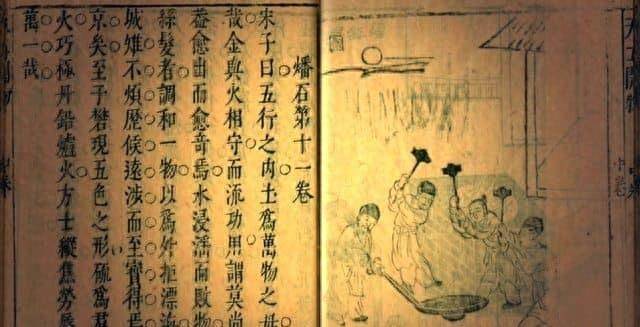 燔石第十一卷
宋子曰五行之内土爲萬物之母
哉金與火相守而流功用謂莫尚
葢愈出而愈奇焉水浸淫而敗物
絲髮者調和一物以爲外拒漂海
城雉不煩歷候遠涉而至寶得焉
京矣至于礬現五色之形硫爲羣
火巧極丹鉛爐火方士縱焦勞脣
萬一哉
中卷